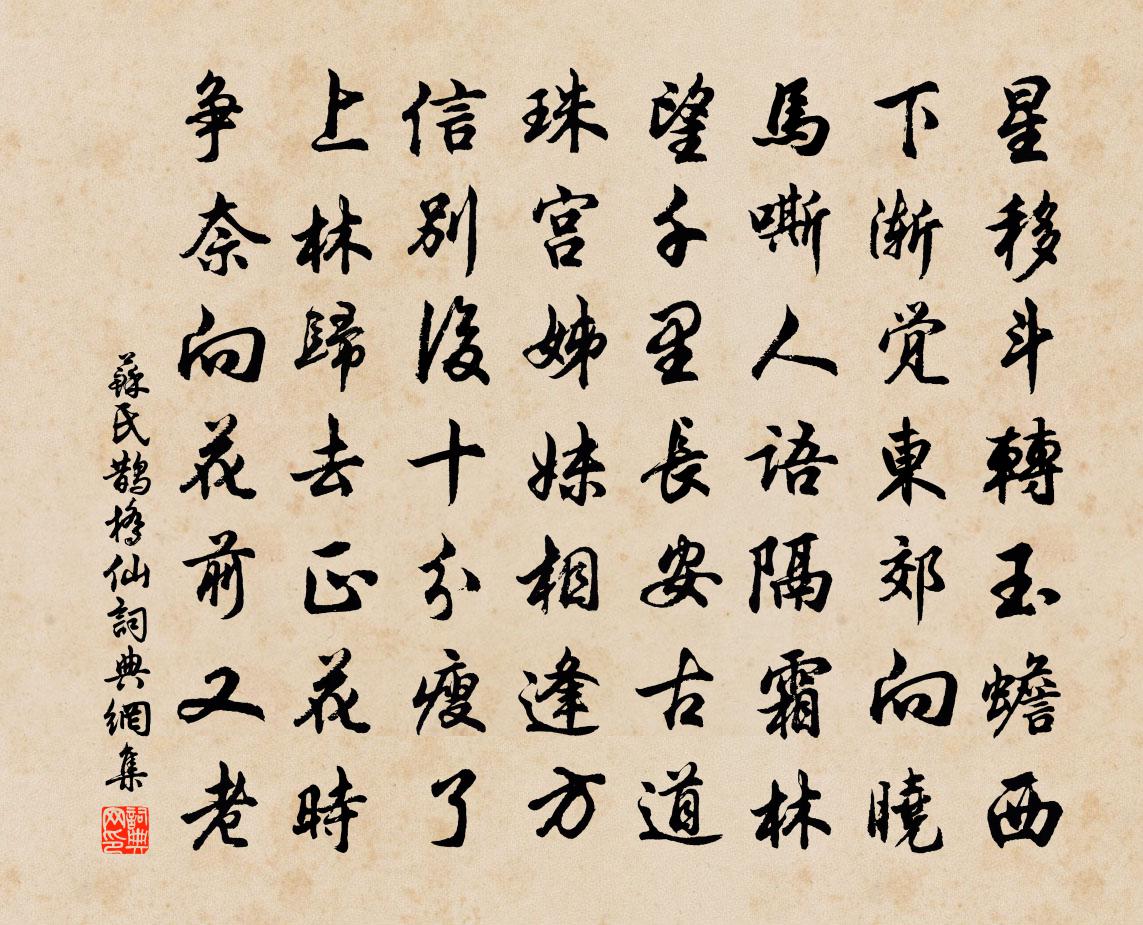 星移斗轉玉蟾西
下漸覚東郊向曉
馬嘶人語隔霜林
望千里長安古道
珠宮姊妹相逢方
信別後十分瘦了
上林歸去正花時
争奈向花前又老
蘇氏鵲橋仙詞典網集
詞典网印